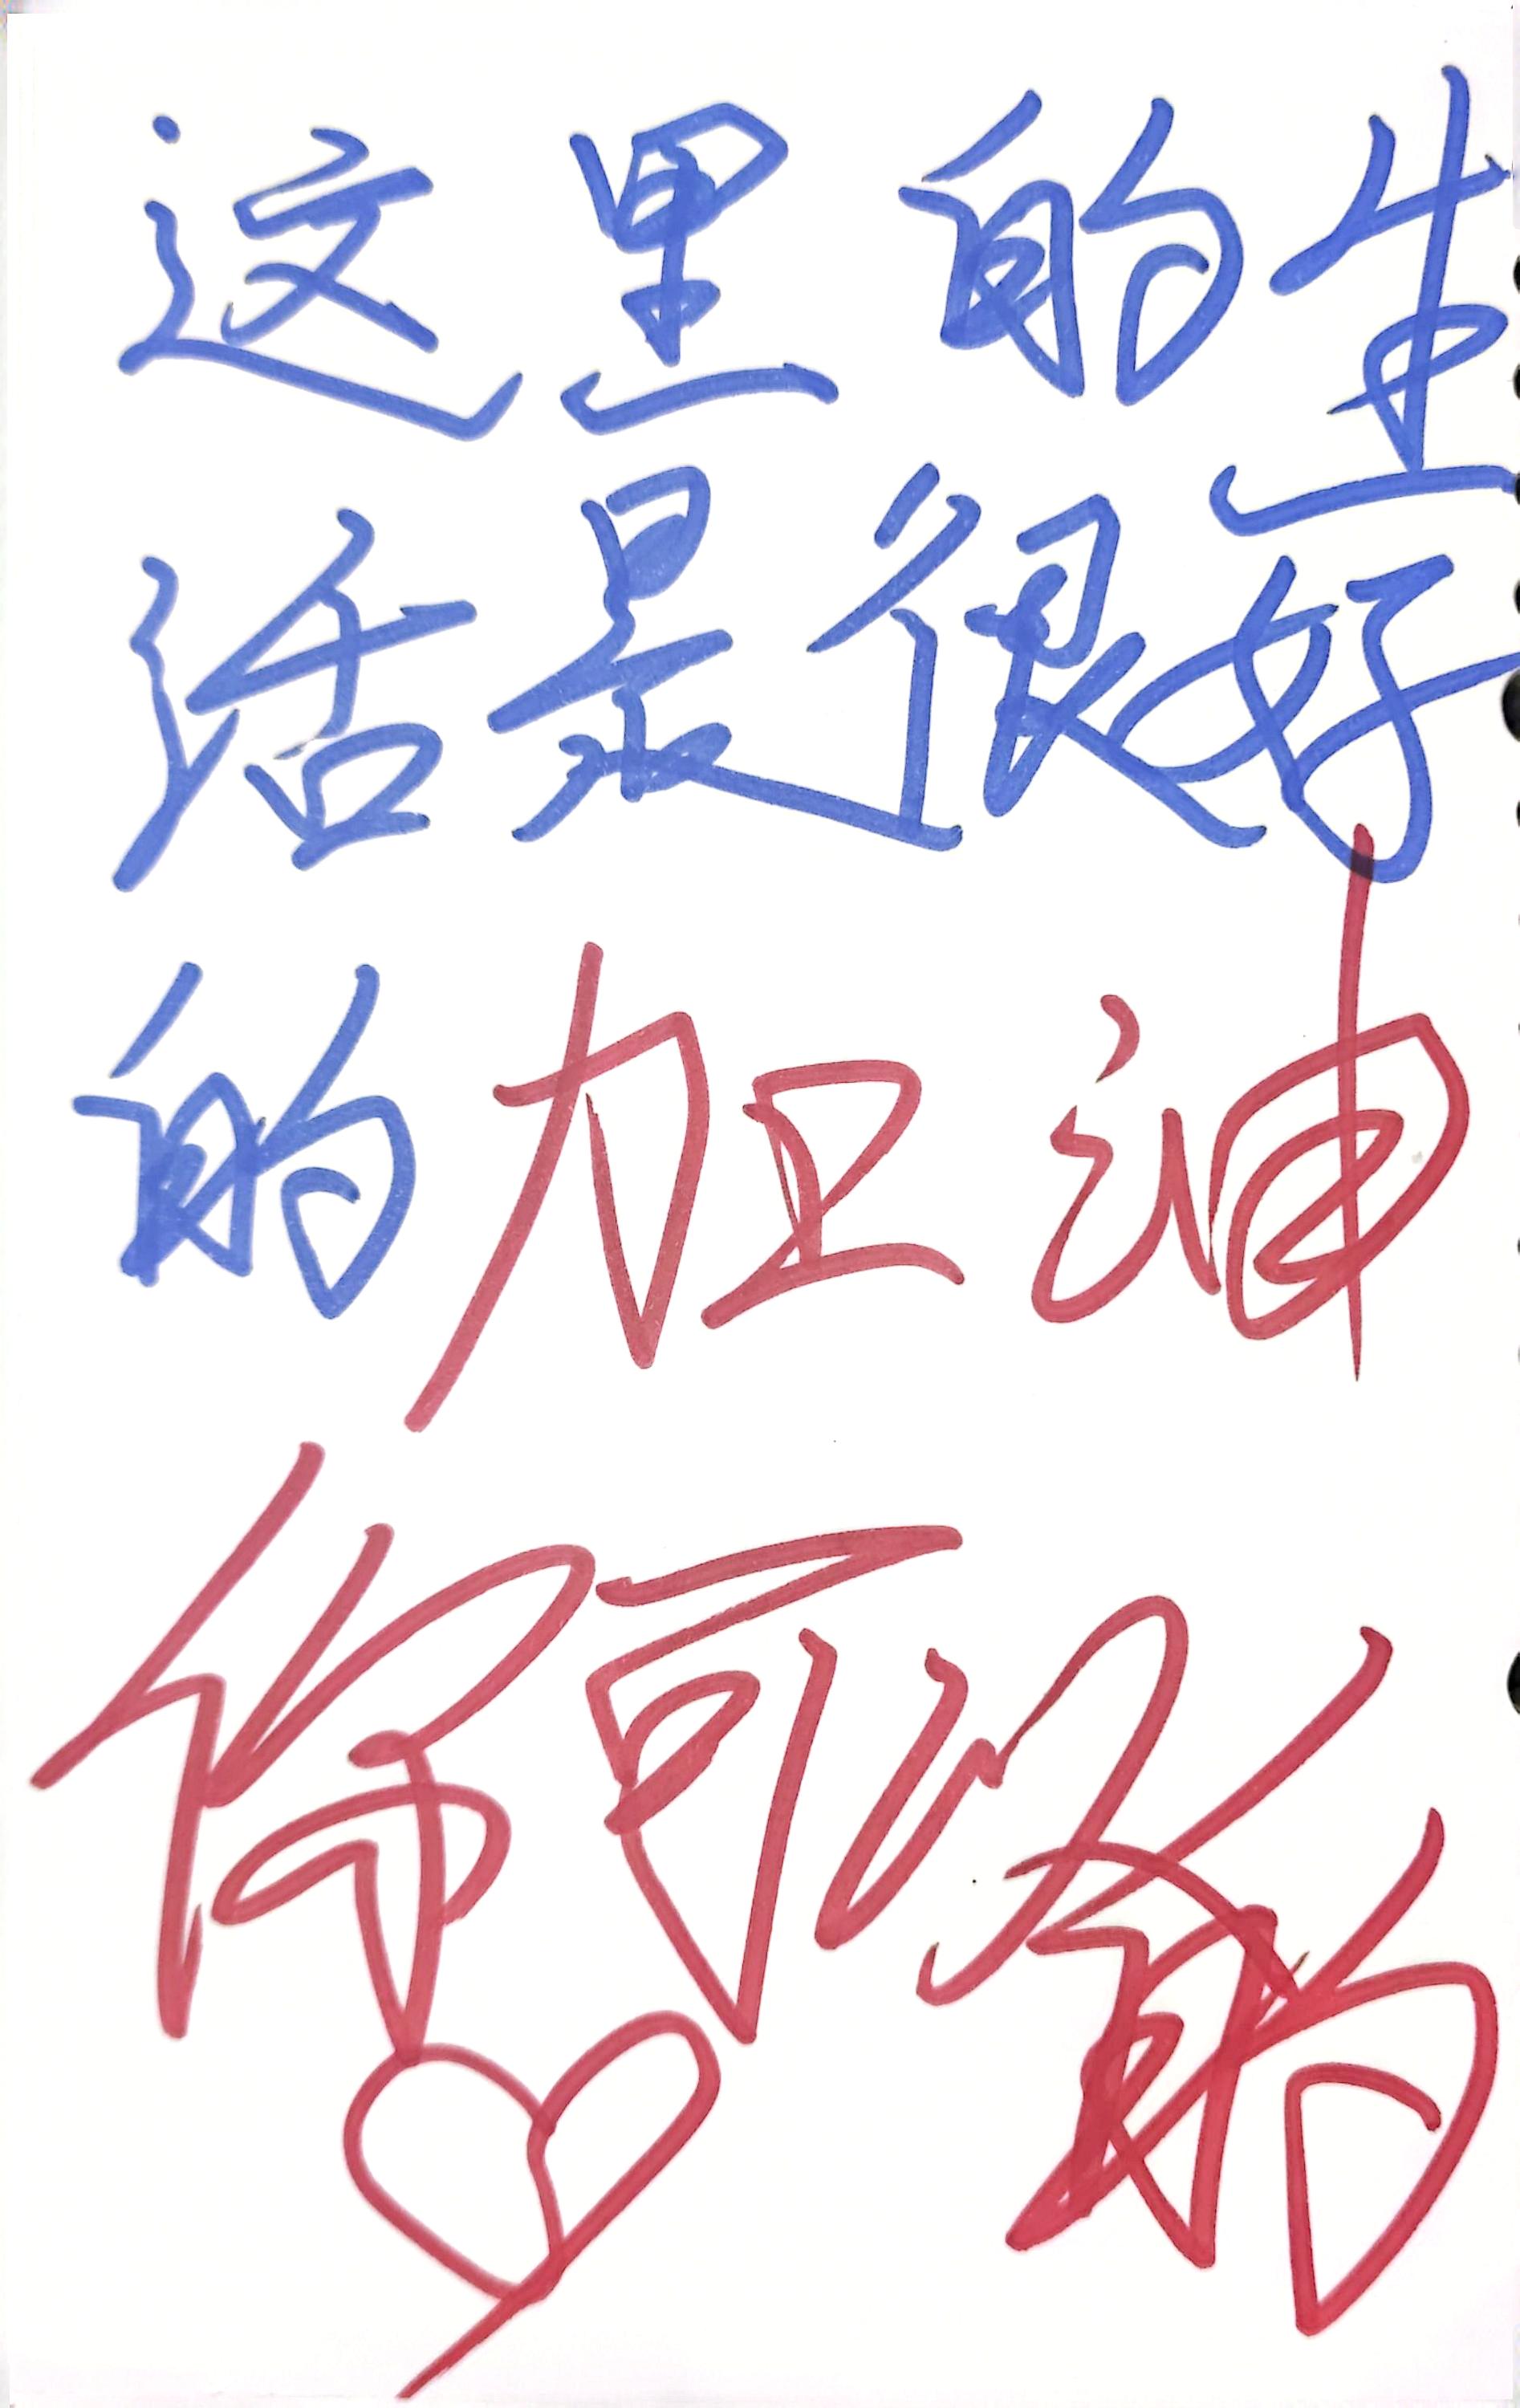 这里的生
活是很好
的加油
你可以的